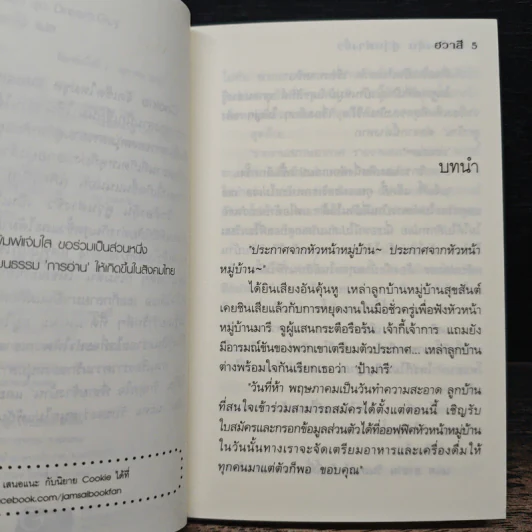 พิมพ์แจ่มใส ขอร่วมเป็นส่วนหนึ่ง
ให้เกิดขึ้นในสังคมไทย
เสนอแนะ กับนิยาย Cookie ได้ที่
cebook.com/jamsaibookfan
ฮวาสี 5
บทนำ
"ประกาศจากหัวหน้าหมู่บ้าน~ ประกาศจากหัวหน้า
หมู่บ้าน~"
ได้ยินเสียงอันคุ้นหู เหล่าลูกบ้านหมู่บ้านสุขสันต์
เคยชินเสียแล้วกับการหยุดงานในมือชั่วครู่เพื่อฟังหัวหน้า
หมู่บ้านมารี จูผู้แสนกระตือรือร้น เจ้ากี้เจ้าการ แถมยัง
มีอารมณ์ขันของพวกเขาเตรียมตัวประกาศ... เหล่าลูกบ้าน
ต่างพร้อมใจกันเรียกเธอว่า 'ป้ามารี'
"วันที่ห้า พฤษภาคมเป็นวันทำความสะอาด ลูกบ้าน
ที่สนใจเข้าร่วมสามารถสมัครได้ตั้งแต่ตอนนี้ เชิญรับ
ใบสมัครและกรอกข้อมูลส่วนตัวได้ที่ออฟฟิศหัวหน้าหมู่บ้าน
ในวันนั้นทางเราจะจัดเตรียมอาหารและเครื่องดื่มให้
ทุกคนมาแต่ตัวก็พอ ขอบคุณ"